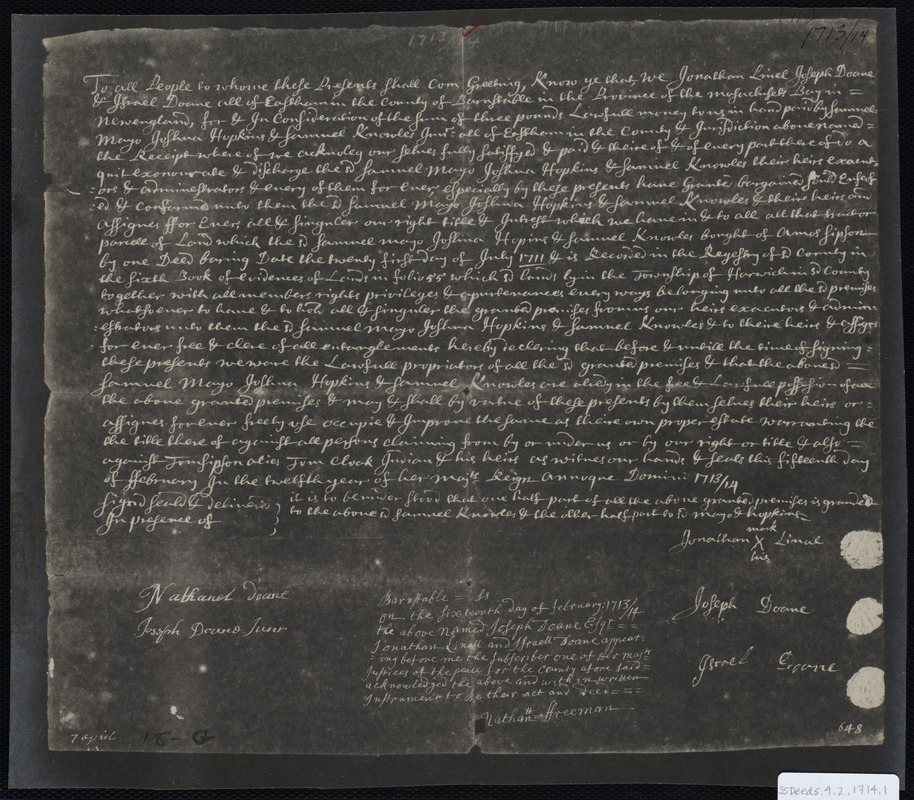 1713/14
1713/4
To all People to whome these Presents shall Com Greeting, Know ye that We Jonathan Linel Joseph Doane
& Israel Doane all of Eastham in the County of Barnstable in the Province of the Masachusets Bay in =
Newengland, for & In Consideration of the sum of three pounds Lawfull money to us in hand paid by Samuel
Mayo Joshua Hopkins & Samuel Knowles Junr: all of Eastham in the County & Jurisdiction above named =
the Receipt where of we acknoleg our selves fully satisfyed & paid & theire of & of every part there of do a
quit exonourate & discharge the sd Samuel Mayo Joshua Hopkins & Samuel Knowles their heirs execut
:ors & administrators & every of them for Ever especially by these presents have Granted bargained sould Enfeof
:d & Confirmed unto them the sd Samuel Mayo Joshua Hopkins & Samuel Knowles & their heirs and
assignes ffor Ever all & singuler our right title & Intrest which we have in & to all that tract or
parcell of Land which the sd Samuel mayo Joshua Hopins & Samuel Knowles bought of Amos Sipson
by one Deed baring Date the twenty first day of July 1711 & is Recorded in the Regestry of sd County in
the sixth Book of evidences of Lands in folio 55 which sd lands ly in the Township of Harwich in sd County
together with all members rights privileges & apurtenances every ways belonging unto all the sd premises
whatsoever to have & to hold all & singuler the granted premises from us our heirs executors & admin
:estrators unto them the sd Samuel Mayo Joshua Hopkins & Samuel Knowles & to theire heirs & assignes
for ever free & clere of all entanglements hereby declering that before & untill the time of signing :
these presents we ware the Lawfull propriators of all the sd granted premises & that the above sd =
Samuel Mayo Joshua Hopkins & Samuel Knowles are in the free & Lawfull possesion of all
the above granted premises & may & shall by virtue of these presents by themselves their heirs or =
assignes for ever freely use occupie & Improve the same as their own proper estate warranting the
the title there of against all persons claiming from by or under us or by our right or title & also =
against Tom Sipson alies Tom Cloak Indian & his heirs as witnes our hands & seals this fifteenth day
of ffebruary In the twelfth year of her majts Reign Annoque Domini 1713/14
Signed seald & delivered } it is to be under stood that one half part of all the above granted premises is granted
In presence of to the above sd Samuel Knowles & the other half part to sd mayo & hopkins =
mark
Jonathan X Linel
his
Nathanel Doane
Joseph Doane Junr
Joseph Doane
Israel Doane
Barnstable = ss
on the sixteenth day of february: 1713/14
the above Named Joseph Doane Esqr = =
Jonathan Linell and Israell Doane appear-
ing before me the subscriber one of Her majts
Justices of the peace for the County afore said =
acknowledged the above and with in written
Instrument to be their act and deed = = =
Nathanll ffreeman
7 april 18-G
648
SSDeeds.4.2.1714.1